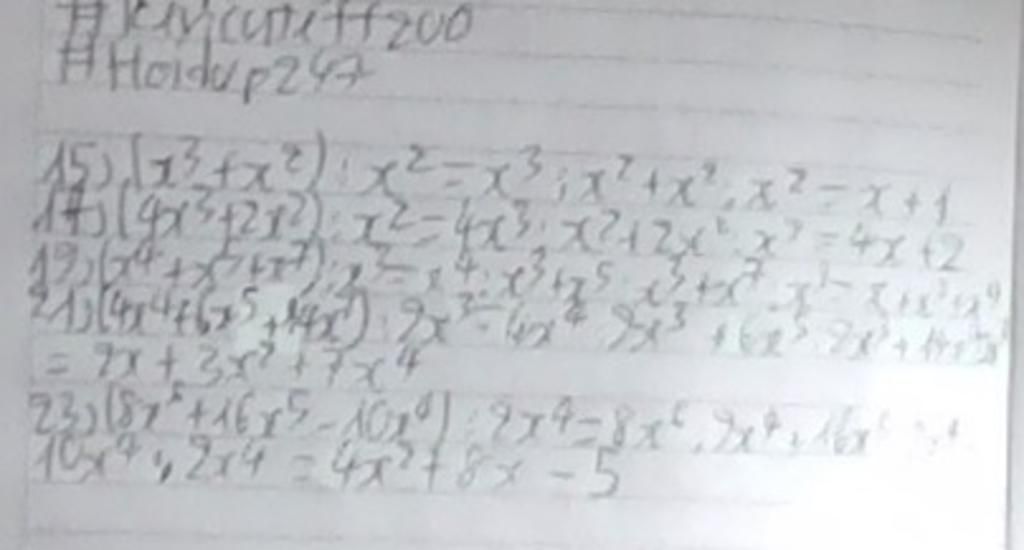 #Holdup247
15) (x³+x²) : x² = x³ : x² + x² : x² = x + 1
17) (4x³+2x²) : x² = 4x³ : x² + 2x² : x² = 4x + 2
19) (x⁴ + x⁵ + x⁷) : x³ = x⁴ : x³ + x⁵ : x³ + x⁷ : x³ = x + x² + x⁴
21) (4x⁴ + 6x⁵ + 14x⁷) : 2x³ = 4x⁴ : 2x³ + 6x⁵ : 2x³ +
= 2x + 3x² + 7x⁴
23) (8x⁶ + 16x⁵ - 10x⁴) : 2x⁴ = 8x⁶ : 2x⁴ + 16x
10x⁴ : 2x⁴ = 4x² + 8x - 5